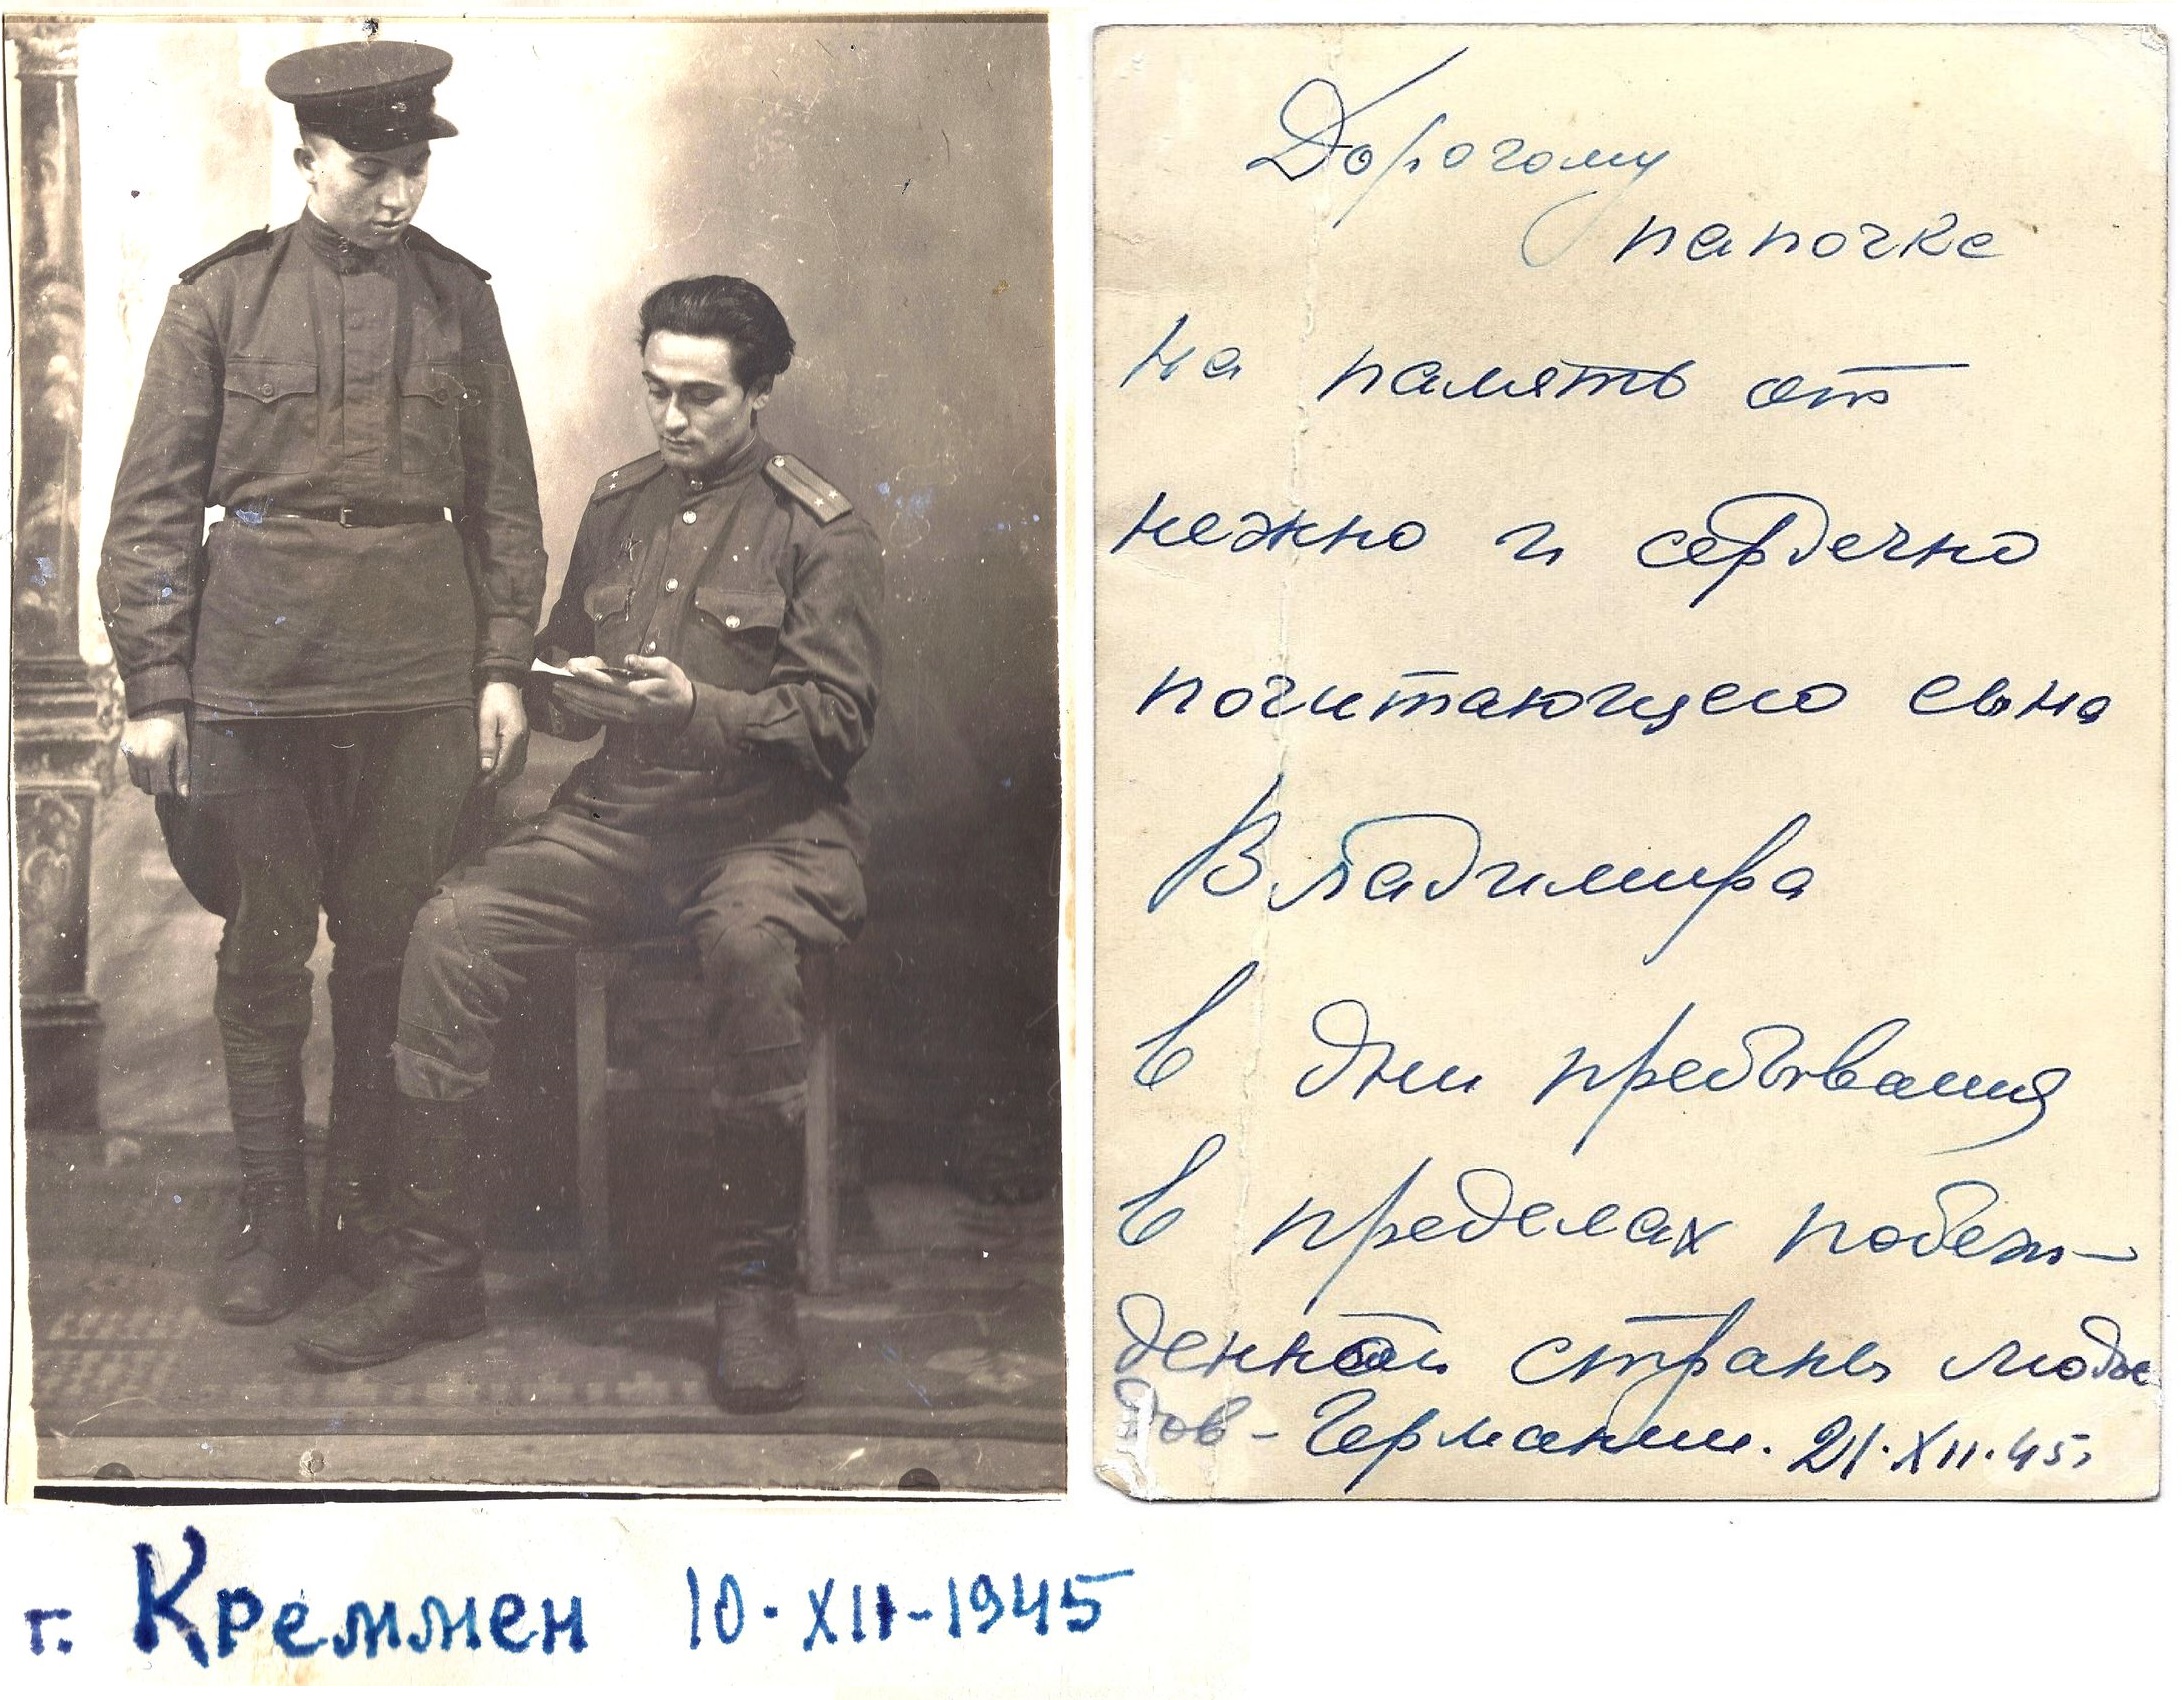 Дорогому
папочке
на память от
нежно и сердечно
почитающего сына
Владимира
в дни пребывания
в пределах побеж-
денной страны людое
дов - Германии. 21.XII.45.
г. Креммен 10-XII-1945